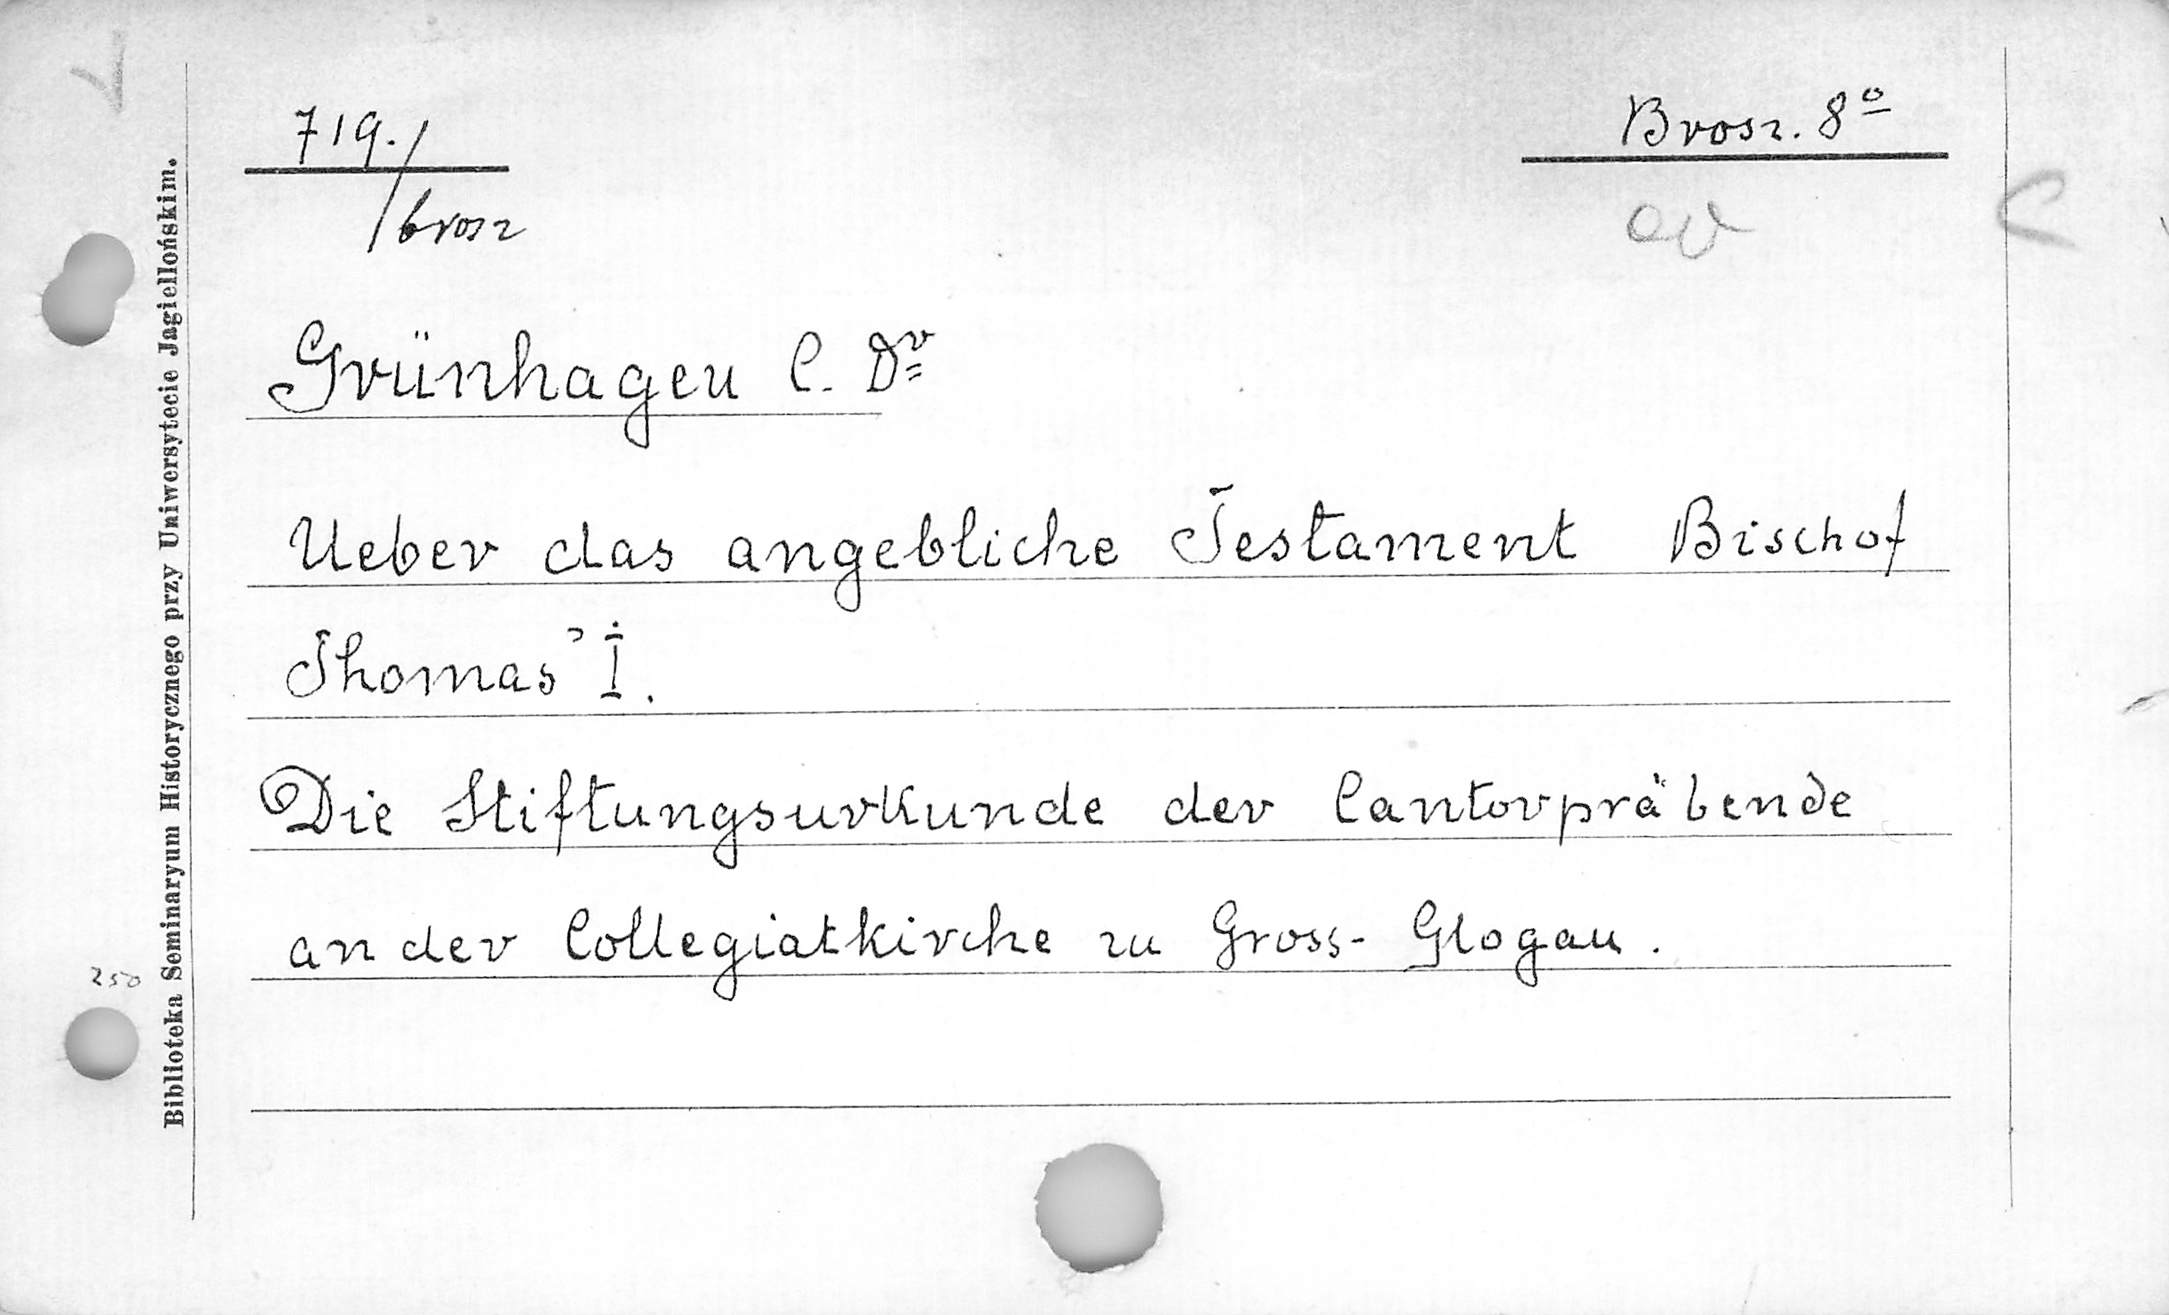 719./brosz
Brosz. 8º
Grünhagen C. Dr
Ueber das angebliche Testament Bischof
Thomas' I.
Die Stiftungsurkunde der Cantorpräbende
an der Collegiatkirche zu Gross-Glogau.
Biblioteka Seminaryum Historycznego przy Uniwersytecie Jagiellońskim.
250